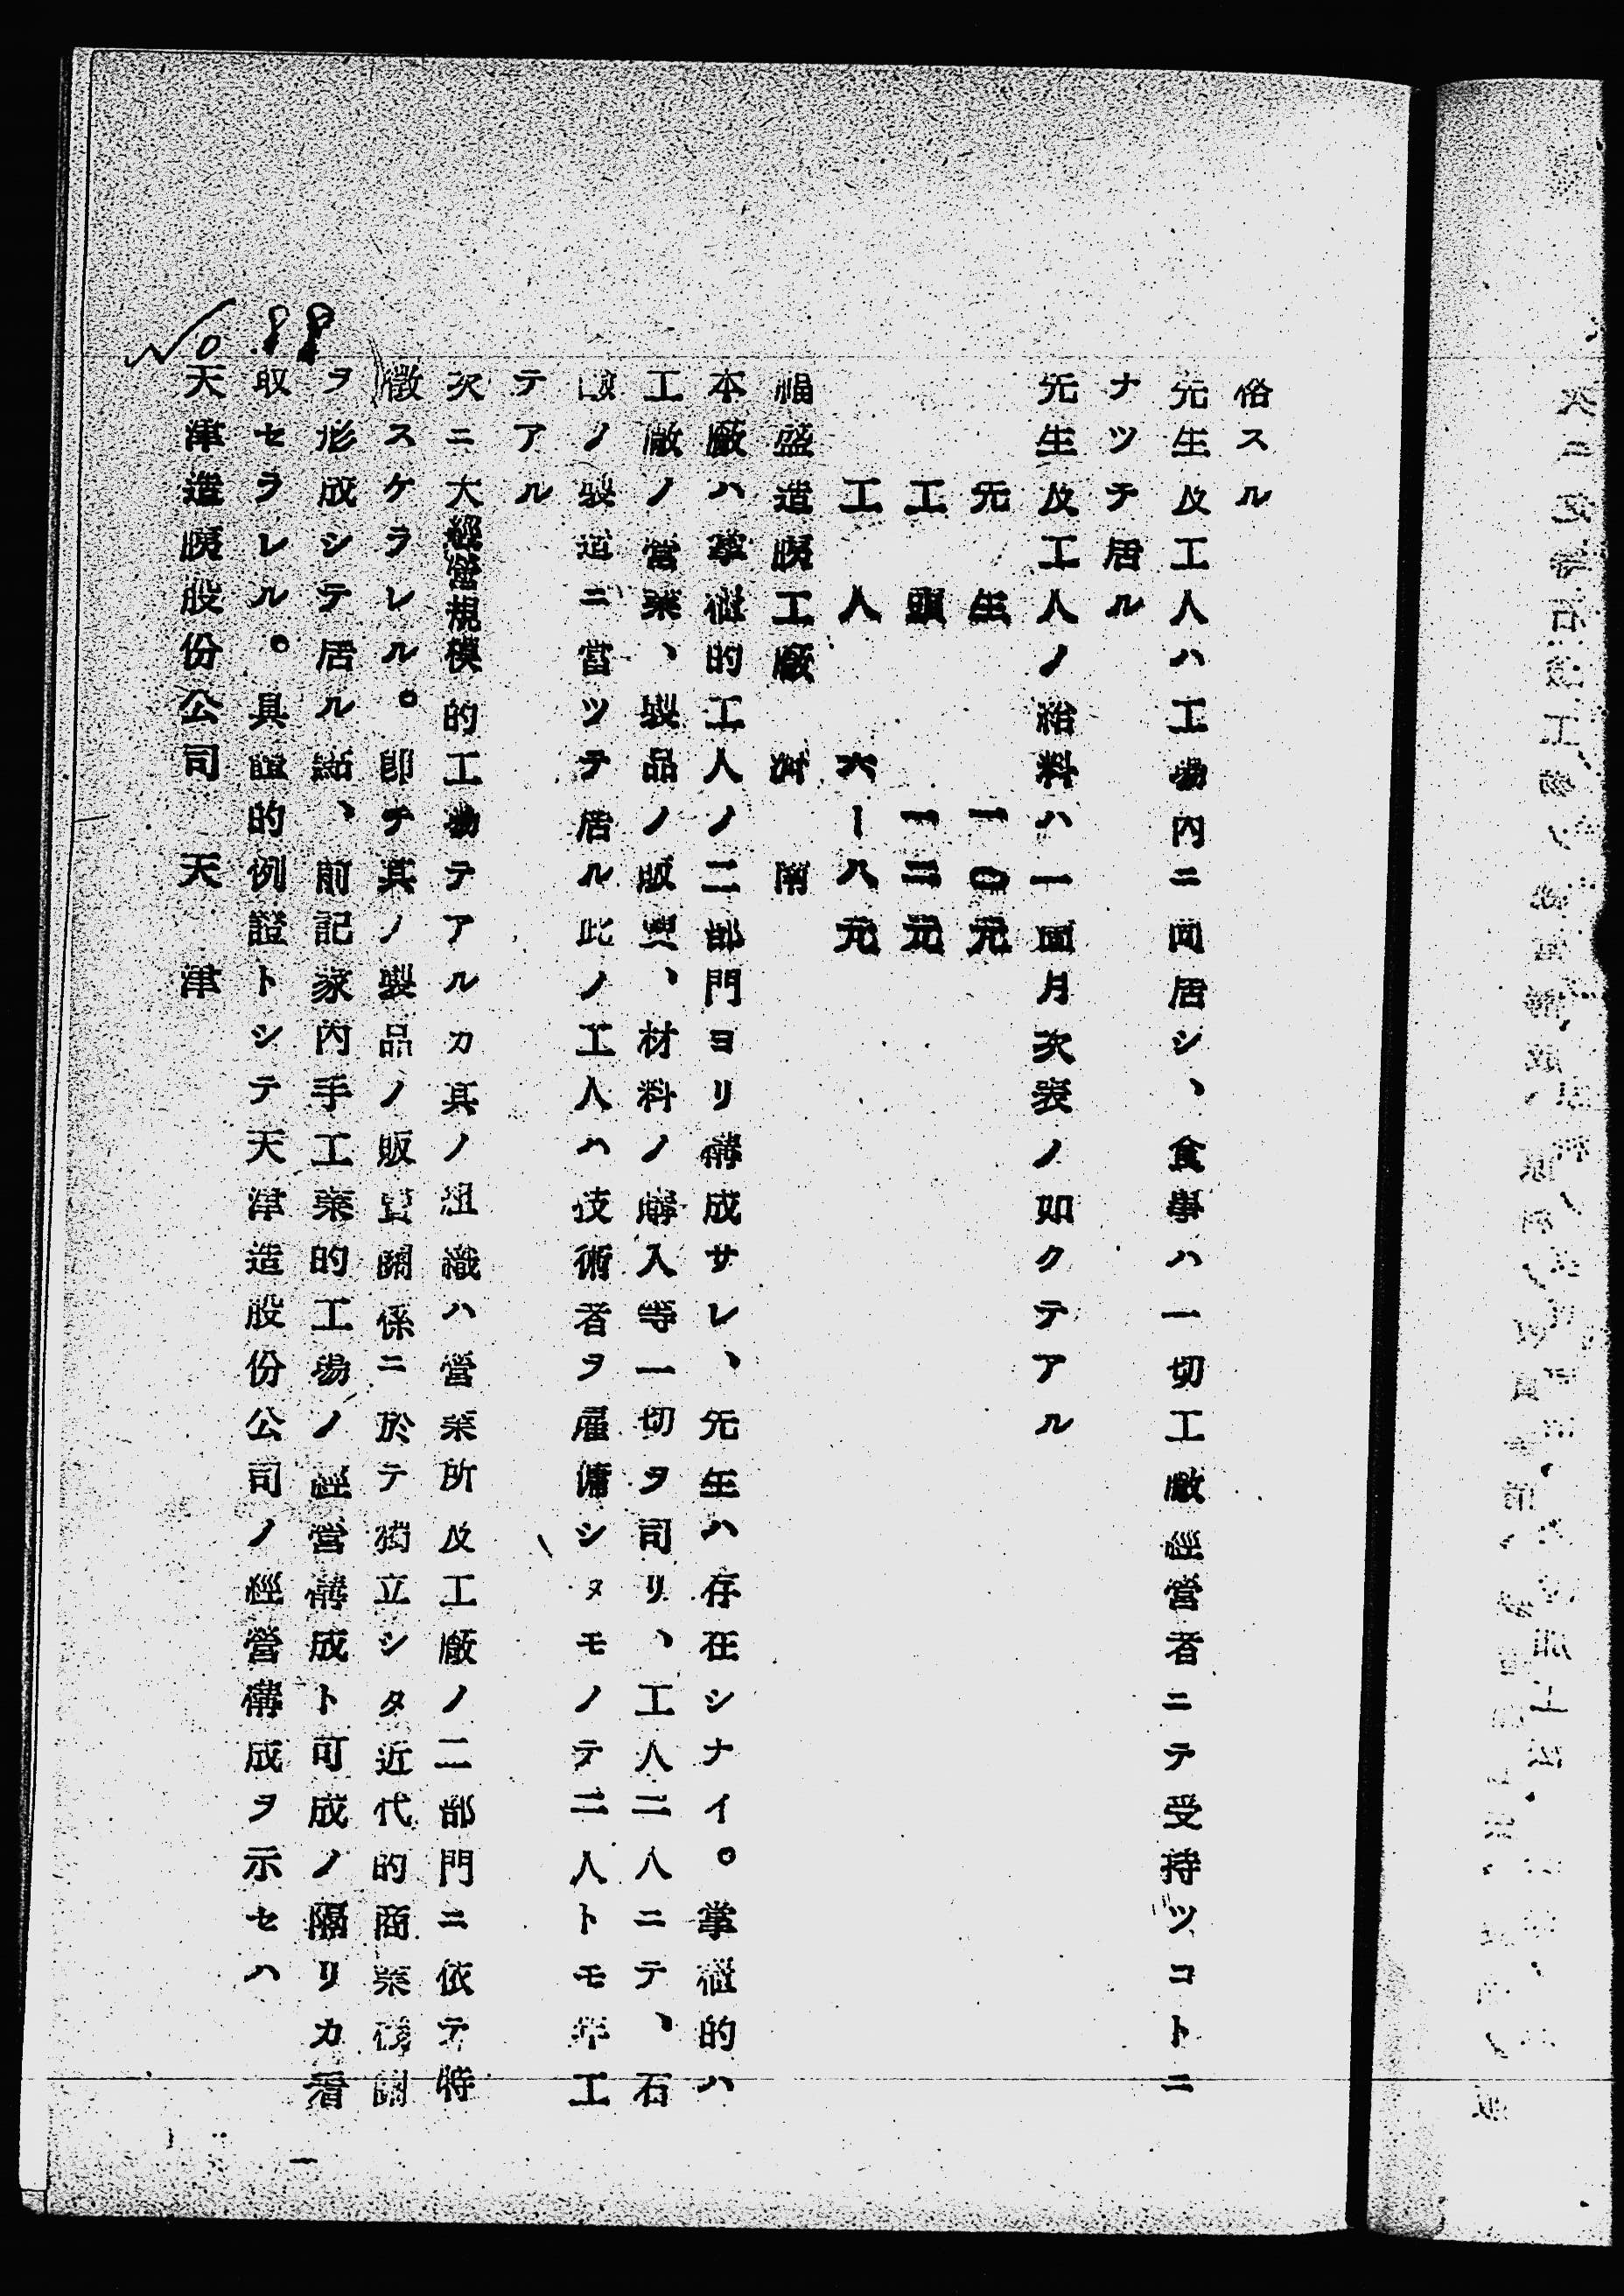 俗スル
先生及工人ハ工場内ニ同居シ、食事ハ一切工廠經營者ニテ受持ツコトニ
ナツテ居ル
先生及工人ノ給料ハ一箇月次表ノ如クテアル
先生 一〇元
工頭 一二元
工人 六ー八元
福盛造胰工廠 濟南
本廠ハ掌櫃的工人ノ二部門ヨリ構成サレ、先生ハ存在シナイ。掌櫃的ハ
工廠ノ營業、製品ノ販賣、材料ノ購入等一切ヲ司リ、工人二人ニテ、石
鹸ノ製造ニ當ツテ居ル此ノ工人ハ技術者ヲ雇傭シタモノテ二人トモ年工
テアル
次ニ大經營規模的工場テアルカ其ノ組織ハ營業所及工廠ノ二部門ニ依テ特
徴スケラレル。即チ其ノ製品ノ販賣關係ニ於テ獨立シタ近代的商業機關
ヲ形成シテ居ル點、前記家内手工業的工場ノ經營構成ト可成ノ隔リカ看
取セラレル。具體的例證トシテ天津造胰股份公司ノ經營構成ヲ示セハ
天津造胰股份公司 天津
No.88